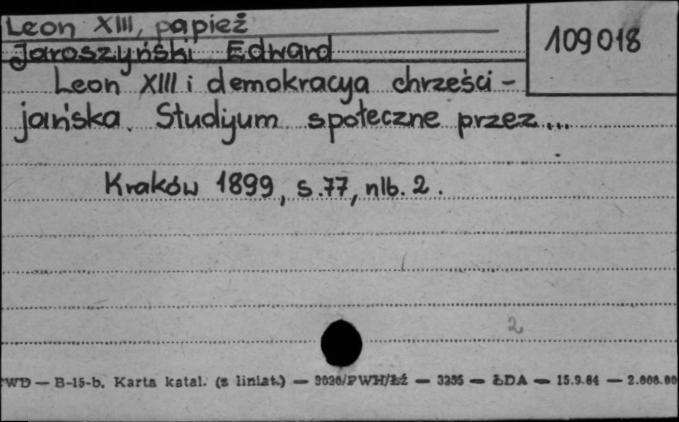 Leon XIII, papież
109018
Jaroszyński Edward
Leon XIII i demokracya chrześci-
jańska. Studyum społeczne przez...
Kraków 1899, s.77, nlb. 2.
2
PWD — B-15-b. Karta katal. (z liniat.) — 3020/PWH/Łź — 3235 — ŁDA — 15.9.64 — 2.000.00